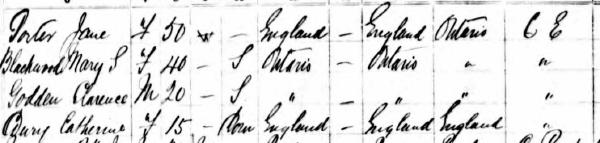 Porter Jane F 50 W - England - England Ontario C E
Blackwood Mary S F 40 - S Ontario - Ontario " "
Godden Clarence M 20 - S " - " " "
Catherine F 15 - Dom England - England England "